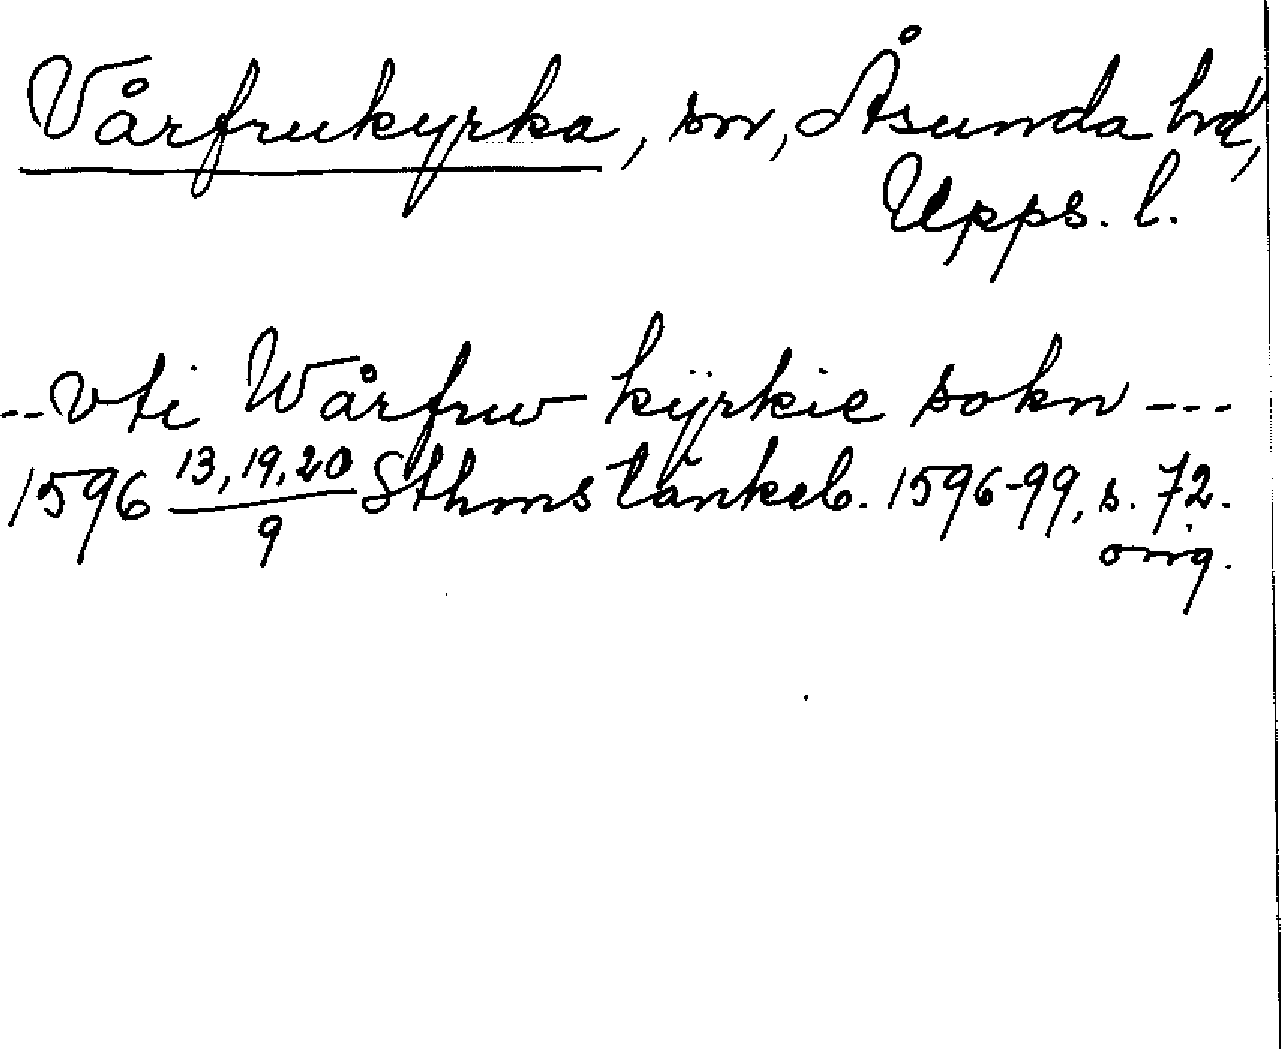 Vårfrukyrka, sn, Åsunda hd,
Upps. l.
--vti Wårfrw kÿrkie sokn---
1596 13,19,20/9 Sthms tänkeb. 1596-99, s. 72.
orig.